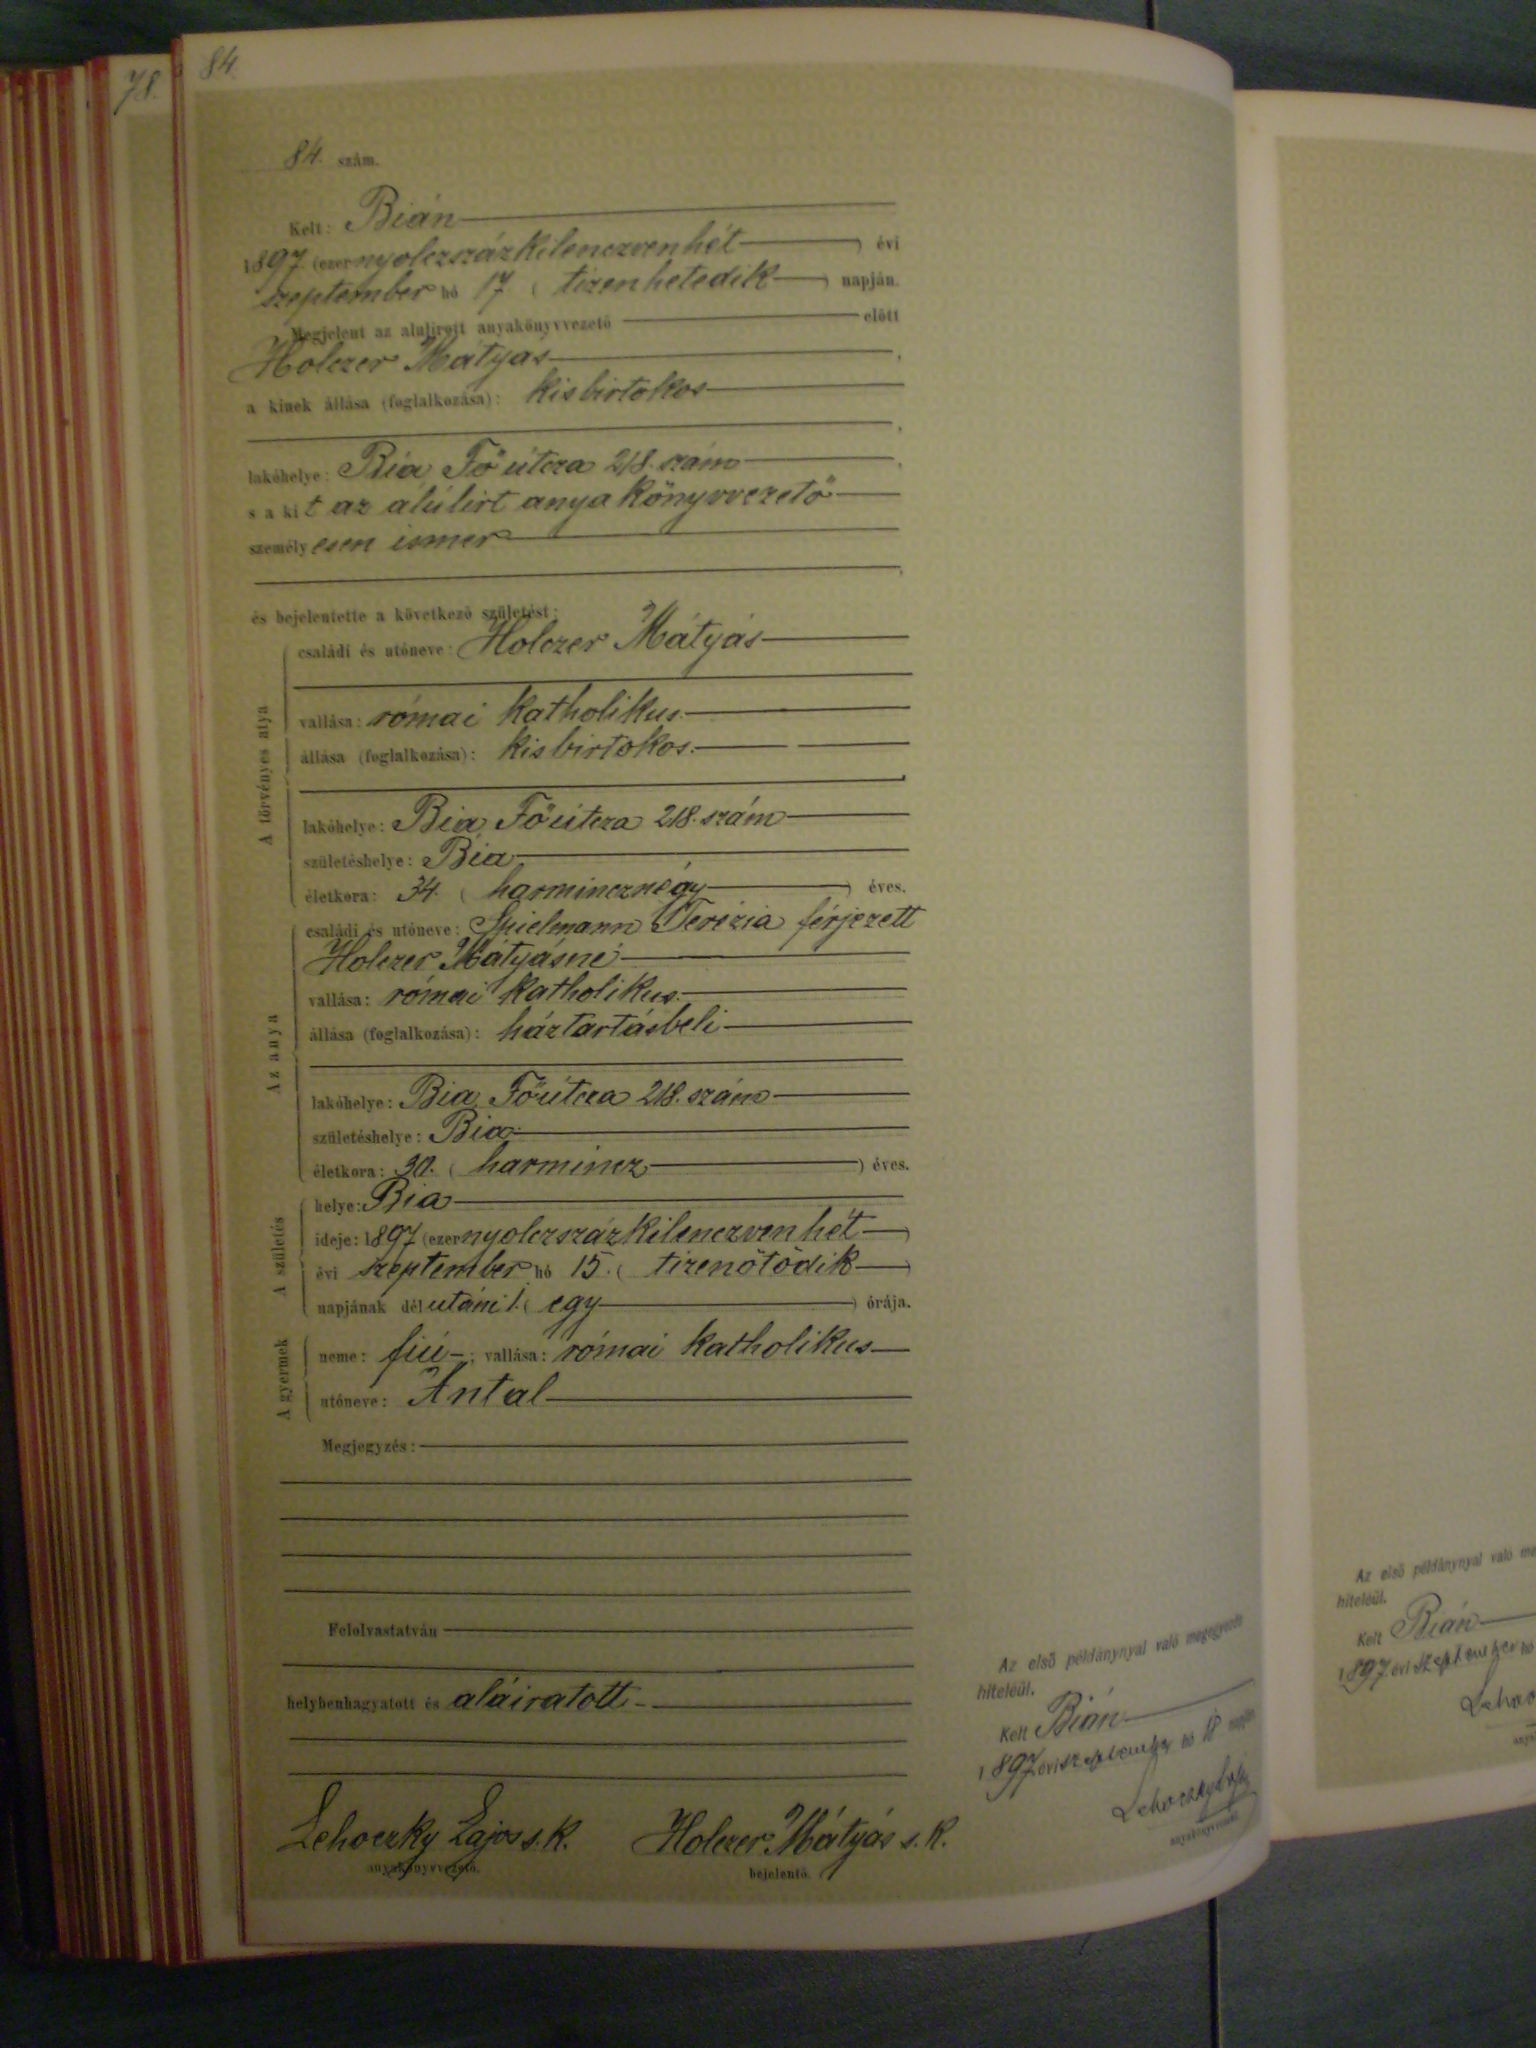 78.
84.
84. szám.
Kelt: Bián
1897 (ezernyolczszázkilenczvenhét) évi
szeptember hó 17. (tizenhetedik) napján.
Megjelent az alulirott anyakönyvvezető előtt
Holczer Mátyás,
a kinek állása (foglalkozása): kisbirtokos
,
lakóhelye: Bia Főútcza 218. szám,
s a kit az alúlirt anyakönyvvezető
személyesen ismer
,
és bejelentette a következő születést:
A törvényes atya
családi és utóneve: Holczer Mátyás
vallása: római katholikus.
állása (foglalkozása): kisbirtokos.
,
lakóhelye: Bia, Főútcza 218. szám
születéshelye: Bia
életkora: 34. (harmincznégy) éves.
Az anya
családi és utóneve: Spielmann Terézia férjezett
Holczer Mátyásné
vallása: római katholikus.
állása (foglalkozása): háztartásbeli
lakóhelye: Bia, Főútcza 218. szám
születéshelye: Bia
életkora: 30. (harmincz) éves.
A születés
helye: Bia
ideje: 1897 (ezernyolczszázkilenczvenhét)
évi szeptember hó 15. (tizenötödik)
napjának délutáni 1. (egy) órája.
A gyermek
neme: fiú; vallása: római katholikus
utóneve: Antal
Megjegyzés:
Felolvastatván
helybenhagyatott és aláiratott.
Lehoczky Lajos s. k.
anyakönyvvezető.
Holczer Mátyás s. k.
bejelentő.
Az első példánynyal való megegyezés
hiteléül.
Kelt Bián
1897. évi szeptember hó 18 napján
Lehoczky Lajos
anyakönyvvezető.
Az első példánynyal való
hiteléül.
Kelt Bián
1897. évi szeptember hó